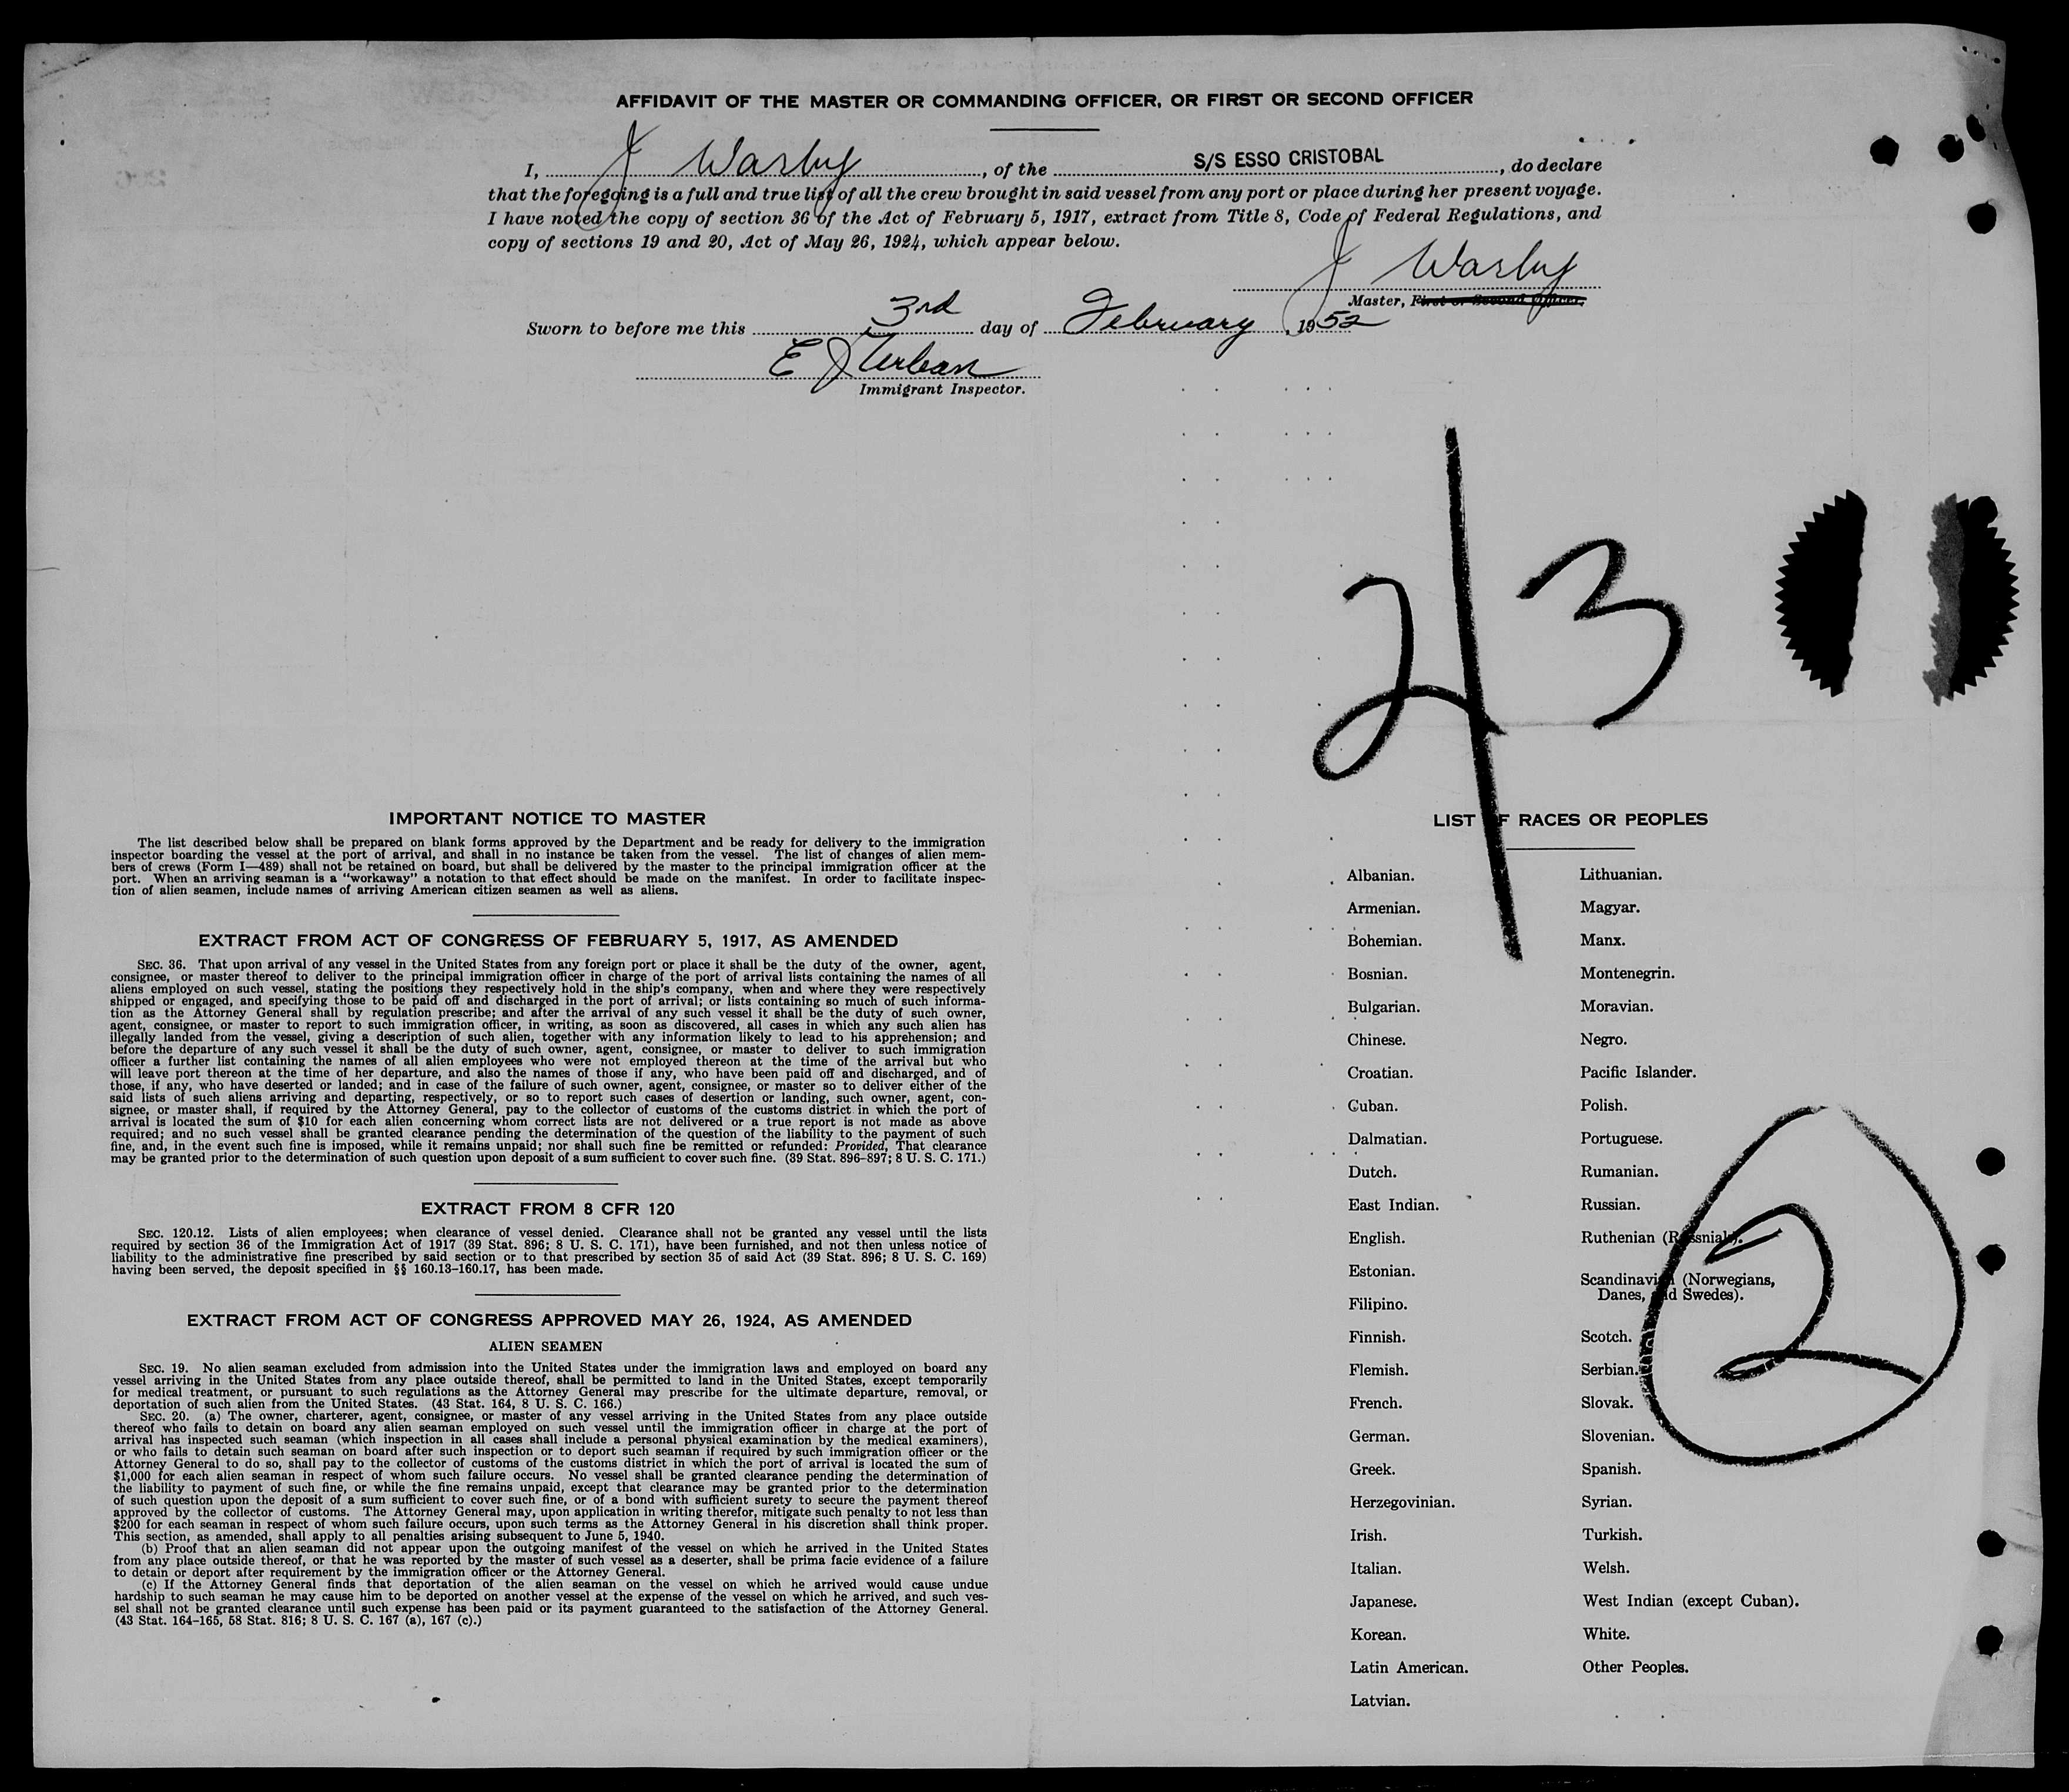 AFFIDAVIT OF THE MASTER OR COMMANDING OFFICER, OR FIRST OR SECOND OFFICER
I, J Warby, of the S/S ESSO CRISTOBAL, do declare
that the foregoing is a full and true list of all the crew brought in said vessel from any port or place during her present voyage.
I have noted the copy of section 36 of the Act of February 5, 1917, extract from Title 8, Code of Federal Regulations, and
copy of sections 19 and 20, Act of May 26, 1924, which appear below.
J Warby
Master, First or Second Officer.
Sworn to before me this 3rd day of February, 1952
E J Urban
Immigrant Inspector.
2/3
IMPORTANT NOTICE TO MASTER
The list described below shall be prepared on blank forms approved by the Department and be ready for delivery to the immigration
inspector boarding the vessel at the port of arrival, and shall in no instance be taken from the vessel. The list of changes of alien mem-
bers of crews (Form I—489) shall not be retained on board, but shall be delivered by the master to the principal immigration officer at the
port. When an arriving seaman is a "workaway" a notation to that effect should be made on the manifest. In order to facilitate inspec-
tion of alien seamen, include names of arriving American citizen seamen as well as aliens.
EXTRACT FROM ACT OF CONGRESS OF FEBRUARY 5, 1917, AS AMENDED
SEC. 36. That upon arrival of any vessel in the United States from any foreign port or place it shall be the duty of the owner, agent,
consignee, or master thereof to deliver to the principal immigration officer in charge of the port of arrival lists containing the names of all
aliens employed on such vessel, stating the positions they respectively hold in the ship's company, when and where they were respectively
shipped or engaged, and specifying those to be paid off and discharged in the port of arrival; or lists containing so much of such informa-
tion as the Attorney General shall by regulation prescribe; and after the arrival of any such vessel it shall be the duty of such owner,
agent, consignee, or master to report to such immigration officer, in writing, as soon as discovered, all cases in which any such alien has
illegally landed from the vessel, giving a description of such alien, together with any information likely to lead to his apprehension; and
before the departure of any such vessel it shall be the duty of such owner, agent, consignee, or master to deliver to such immigration
officer a further list containing the names of all alien employees who were not employed thereon at the time of the arrival but who
will leave port thereon at the time of her departure, and also the names of those if any, who have been paid off and discharged, and of
those, if any, who have deserted or landed; and in case of the failure of such owner, agent, consignee, or master so to deliver either of the
said lists of such aliens arriving and departing, respectively, or so to report such cases of desertion or landing, such owner, agent, con-
signee, or master shall, if required by the Attorney General, pay to the collector of customs of the customs district in which the port of
arrival is located the sum of $10 for each alien concerning whom correct lists are not delivered or a true report is not made as above
required; and no such vessel shall be granted clearance pending the determination of the question of the liability to the payment of such
fine, and, in the event such fine is imposed, while it remains unpaid; nor shall such fine be remitted or refunded: Provided, That clearance
may be granted prior to the determination of such question upon deposit of a sum sufficient to cover such fine. (39 Stat. 896–897; 8 U. S. C. 171.)
EXTRACT FROM 8 CFR 120
SEC. 120.12. Lists of alien employees; when clearance of vessel denied. Clearance shall not be granted any vessel until the lists
required by section 36 of the Immigration Act of 1917 (39 Stat. 896; 8 U. S. C. 171), have been furnished, and not then unless notice of
liability to the administrative fine prescribed by said section or to that prescribed by section 35 of said Act (39 Stat. 896; 8 U. S. C. 169)
having been served, the deposit specified in §§ 160.13–160.17, has been made.
EXTRACT FROM ACT OF CONGRESS APPROVED MAY 26, 1924, AS AMENDED
ALIEN SEAMEN
SEC. 19. No alien seaman excluded from admission into the United States under the immigration laws and employed on board any
vessel arriving in the United States from any place outside thereof, shall be permitted to land in the United States, except temporarily
for medical treatment, or pursuant to such regulations as the Attorney General may prescribe for the ultimate departure, removal, or
deportation of such alien from the United States. (43 Stat. 164, 8 U. S. C. 166.)
SEC. 20. (a) The owner, charterer, agent, consignee, or master of any vessel arriving in the United States from any place outside
thereof who fails to detain on board any alien seaman employed on such vessel until the immigration officer in charge at the port of
arrival has inspected such seaman (which inspection in all cases shall include a personal physical examination by the medical examiners),
or who fails to detain such seaman on board after such inspection or to deport such seaman if required by such immigration officer or the
Attorney General to do so, shall pay to the collector of customs of the customs district in which the port of arrival is located the sum of
$1,000 for each alien seaman in respect of whom such failure occurs. No vessel shall be granted clearance pending the determination of
the liability to payment of such fine, or while the fine remains unpaid, except that clearance may be granted prior to the determination
of such question upon the deposit of a sum sufficient to cover such fine, or of a bond with sufficient surety to secure the payment thereof
approved by the collector of customs. The Attorney General may, upon application in writing therefor, mitigate such penalty to not less than
$200 for each seaman in respect of whom such failure occurs, upon such terms as the Attorney General in his discretion shall think proper.
This section, as amended, shall apply to all penalties arising subsequent to June 5, 1940.
(b) Proof that an alien seaman did not appear upon the outgoing manifest of the vessel on which he arrived in the United States
from any place outside thereof, or that he was reported by the master of such vessel as a deserter, shall be prima facie evidence of a failure
to detain or deport after requirement by the immigration officer or the Attorney General.
(c) If the Attorney General finds that deportation of the alien seaman on the vessel on which he arrived would cause undue
hardship to such seaman he may cause him to be deported on another vessel at the expense of the vessel on which he arrived, and such ves-
sel shall not be granted clearance until such expense has been paid or its payment guaranteed to the satisfaction of the Attorney General.
(43 Stat. 164–165, 58 Stat. 816; 8 U. S. C. 167 (a), 167 (c).)
LIST OF RACES OR PEOPLES
Albanian.
Armenian.
Bohemian.
Bosnian.
Bulgarian.
Chinese.
Croatian.
Cuban.
Dalmatian.
Dutch.
East Indian.
English.
Estonian.
Filipino.
Finnish.
Flemish.
French.
German.
Greek.
Herzegovinian.
Irish.
Italian.
Japanese.
Korean.
Latin American.
Latvian.
Lithuanian.
Magyar.
Manx.
Montenegrin.
Moravian.
Negro.
Pacific Islander.
Polish.
Portuguese.
Rumanian.
Russian.
Ruthenian (Russniak).
Scandinavian (Norwegians,
Danes, and Swedes).
Scotch.
Serbian.
Slovak.
Slovenian.
Spanish.
Syrian.
Turkish.
Welsh.
West Indian (except Cuban).
White.
Other Peoples.
2